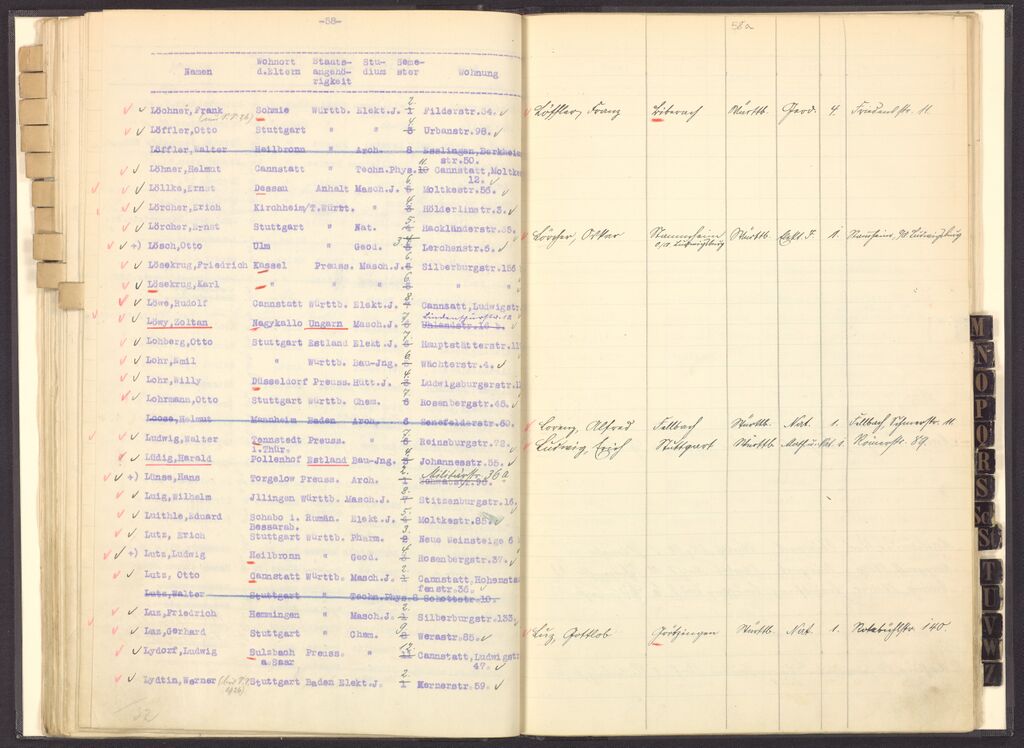 -58-
Namen Wohnort d.Eltern Staats-angehö-rigkeit Stu-dium Seme-ster Wohnung
Löchner,Frank Schmie Württb. Elekt.J. 1 2. Filderstr.54.
Löffler,Otto Stuttgart " " 3 4 Urbanstr.98.
Löffler,Walter Heilbronn " Arch. 8 Esslingen,Berkheim
str.50.
Löhner,Helmut Cannstatt " Techn.Phys. 10 11. Cannstatt,Moltke
12.
Löllke,Ernst Dessau Anhalt Masch.J. 6 Moltkestr.56.
Lörcher,Erich Kirchheim/T.Württ. " 4 Hölderlinstr.3.
Lörcher,Ernst Stuttgart " Nat. 5 Hackländerstr.35.
+) Lösch,Otto Ulm " Geod. 3 4 Lerchenstr.6.
Lösekrug,Friedrich Kassel Preuss. Masch.J. 6 Silberburgstr.156
Lösekrug,Karl " " " 6 "
Löwe,Rudolf Cannstatt Württb. Elekt.J. 8 Cannstatt,Ludwigstr
Löwy,Zoltan Nagykallo Ungarn Masch.J. 7 Uhlandstr.16 b.
Lohberg,Otto Stuttgart Estland Elekt.J. 7 Hauptstätterstr.11
Lohr,Emil " Württb. Bau-Jng. 6 Wächterstr.4.
Lohr,Willy Düsseldorf Preuss. Hütt.J. 4 Ludwigsburgerstr.1
Lohrmann,Otto Stuttgart Württb. Chem. 7 Rosenbergstr.45.
Loose,Helmut Mannheim Baden Arch. 6 Senefelderstr.60.
Ludwig,Walter Tennstedt Preuss. " 7 Reinsburgstr.72.
i.Thür.
Lüdig,Harald Pollenhof Estland Bau-Jng. Johannesstr.55.
+) Lünse,Hans Torgelow Preuss. Arch. 1 2 Militärstr. 36a
Luig,Wilhelm Jllingen Württb. Masch.J. 7 8. Stitzenburgstr.16.
Luithle,Eduard Schabo i. Rumän. Elekt.J. 5. Moltkestr.85.
Bessarab.
Lutz, Erich Stuttgart Württb. Pharm. 2 3. Neue Weinsteige 6
+) Lutz,Ludwig Heilbronn " Geod. 4 Rosenbergstr.37.
Lutz, Otto Cannstatt Württb. Masch.J. 1 2 Cannstatt,Hohensta
fenstr.36.
Lutz,Walter Stuttgart " Techn.Phys.8 Schottstr.10.
Luz,Friedrich Hemmingen " Masch.J. 1 2. Silberburgstr.133.
Luz,Gerhard Stuttgart " Chem. 9 Werastr.65.
Lydorf,Ludwig Sulzbach Preuss. " 11 12. Cannstatt,Ludwigstr
a.Saar 47.
Lydtin,Werner Stuttgart Baden Elekt.J. 1 2. Kernerstr.59.
58a
Löffler, Franz Biberach Württb. Geod. 4. Friedenstr. 11.
Lörcher, Oskar Stammheim Württb. Elekt. J. 1. Stammheim O/A Ludwigsburg
O/A Ludwigsburg
Lorenz, Alfred Fellbach Württb. Nat. 1. Fellbach,
Ludwig, Erich Stuttgart Württb. Math.u.Nat. 1 Römerstr. 89.
Luz, Gottlob Württb. Nat. 1. Rotebühlstr. 140
M
N
O
P
Q
R
S
Sch
St
T
U
V
W
Z